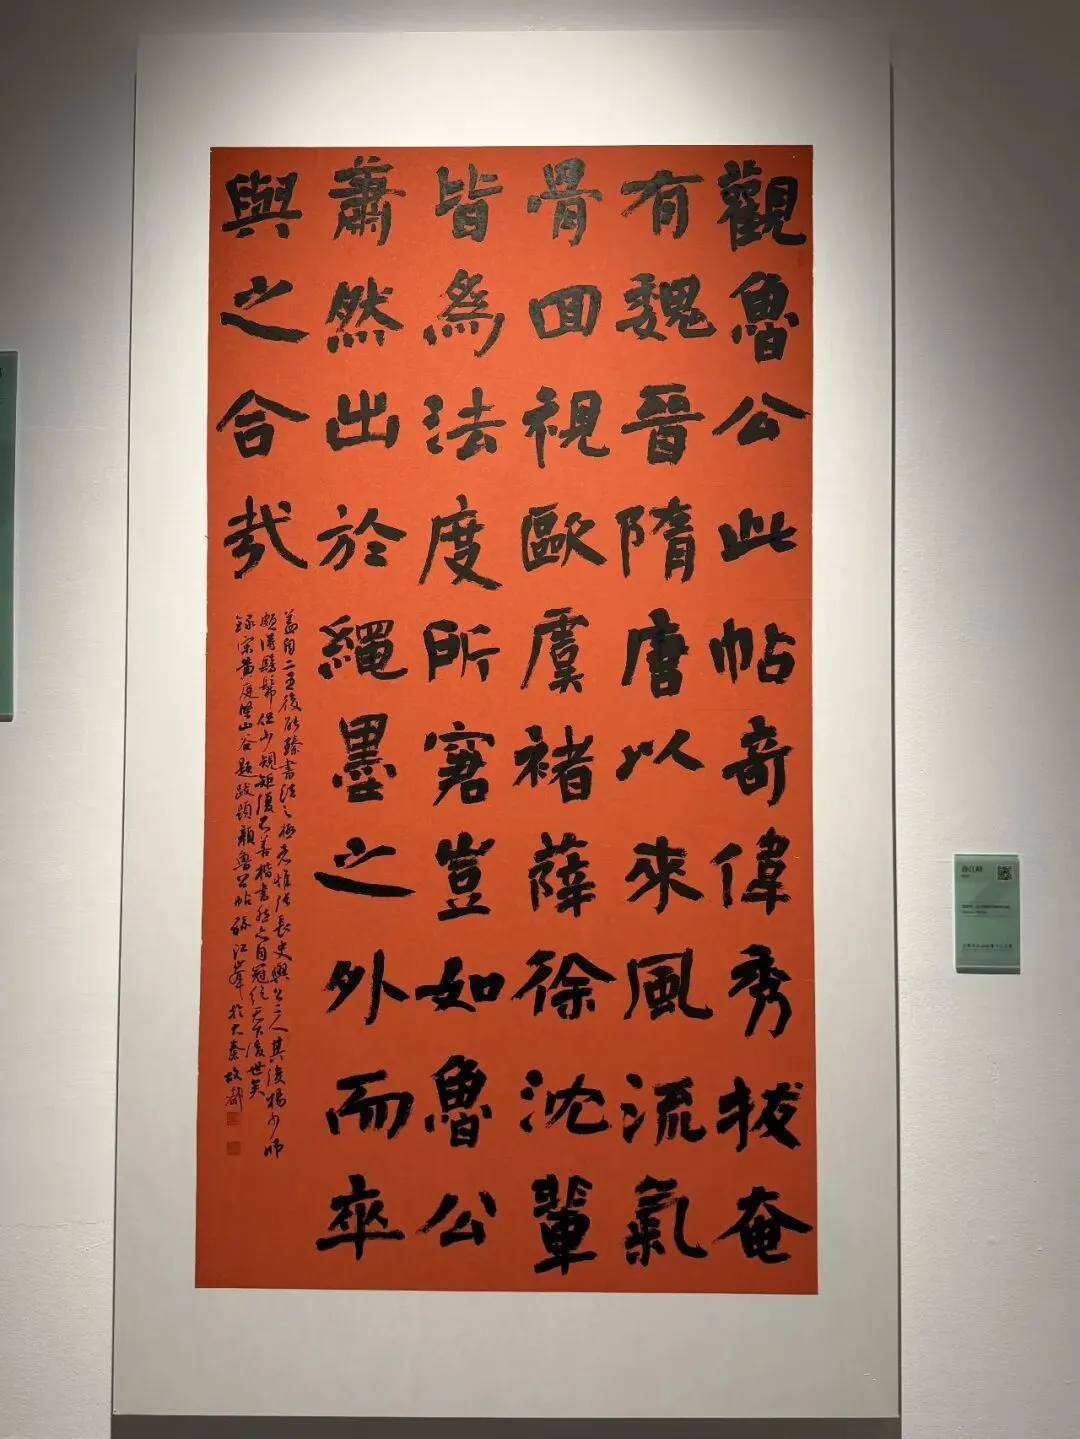 觀魯公此帖奇偉秀拔奄
有魏晉隋唐以來風流氣
骨回視歐虞褚薛徐沈輩
皆為法度所窘豈如魯公
蕭然出於繩墨之外而卒
與之合哉
蓋自二王後能臻書法之極者惟張長史與公二人其後楊少師
頗得髣髴但少規矩復不善楷書然亦自冠絕天下後世矣
錄宋黃庭堅山谷題跋題顏魯公帖 孫江峰於大秦故都